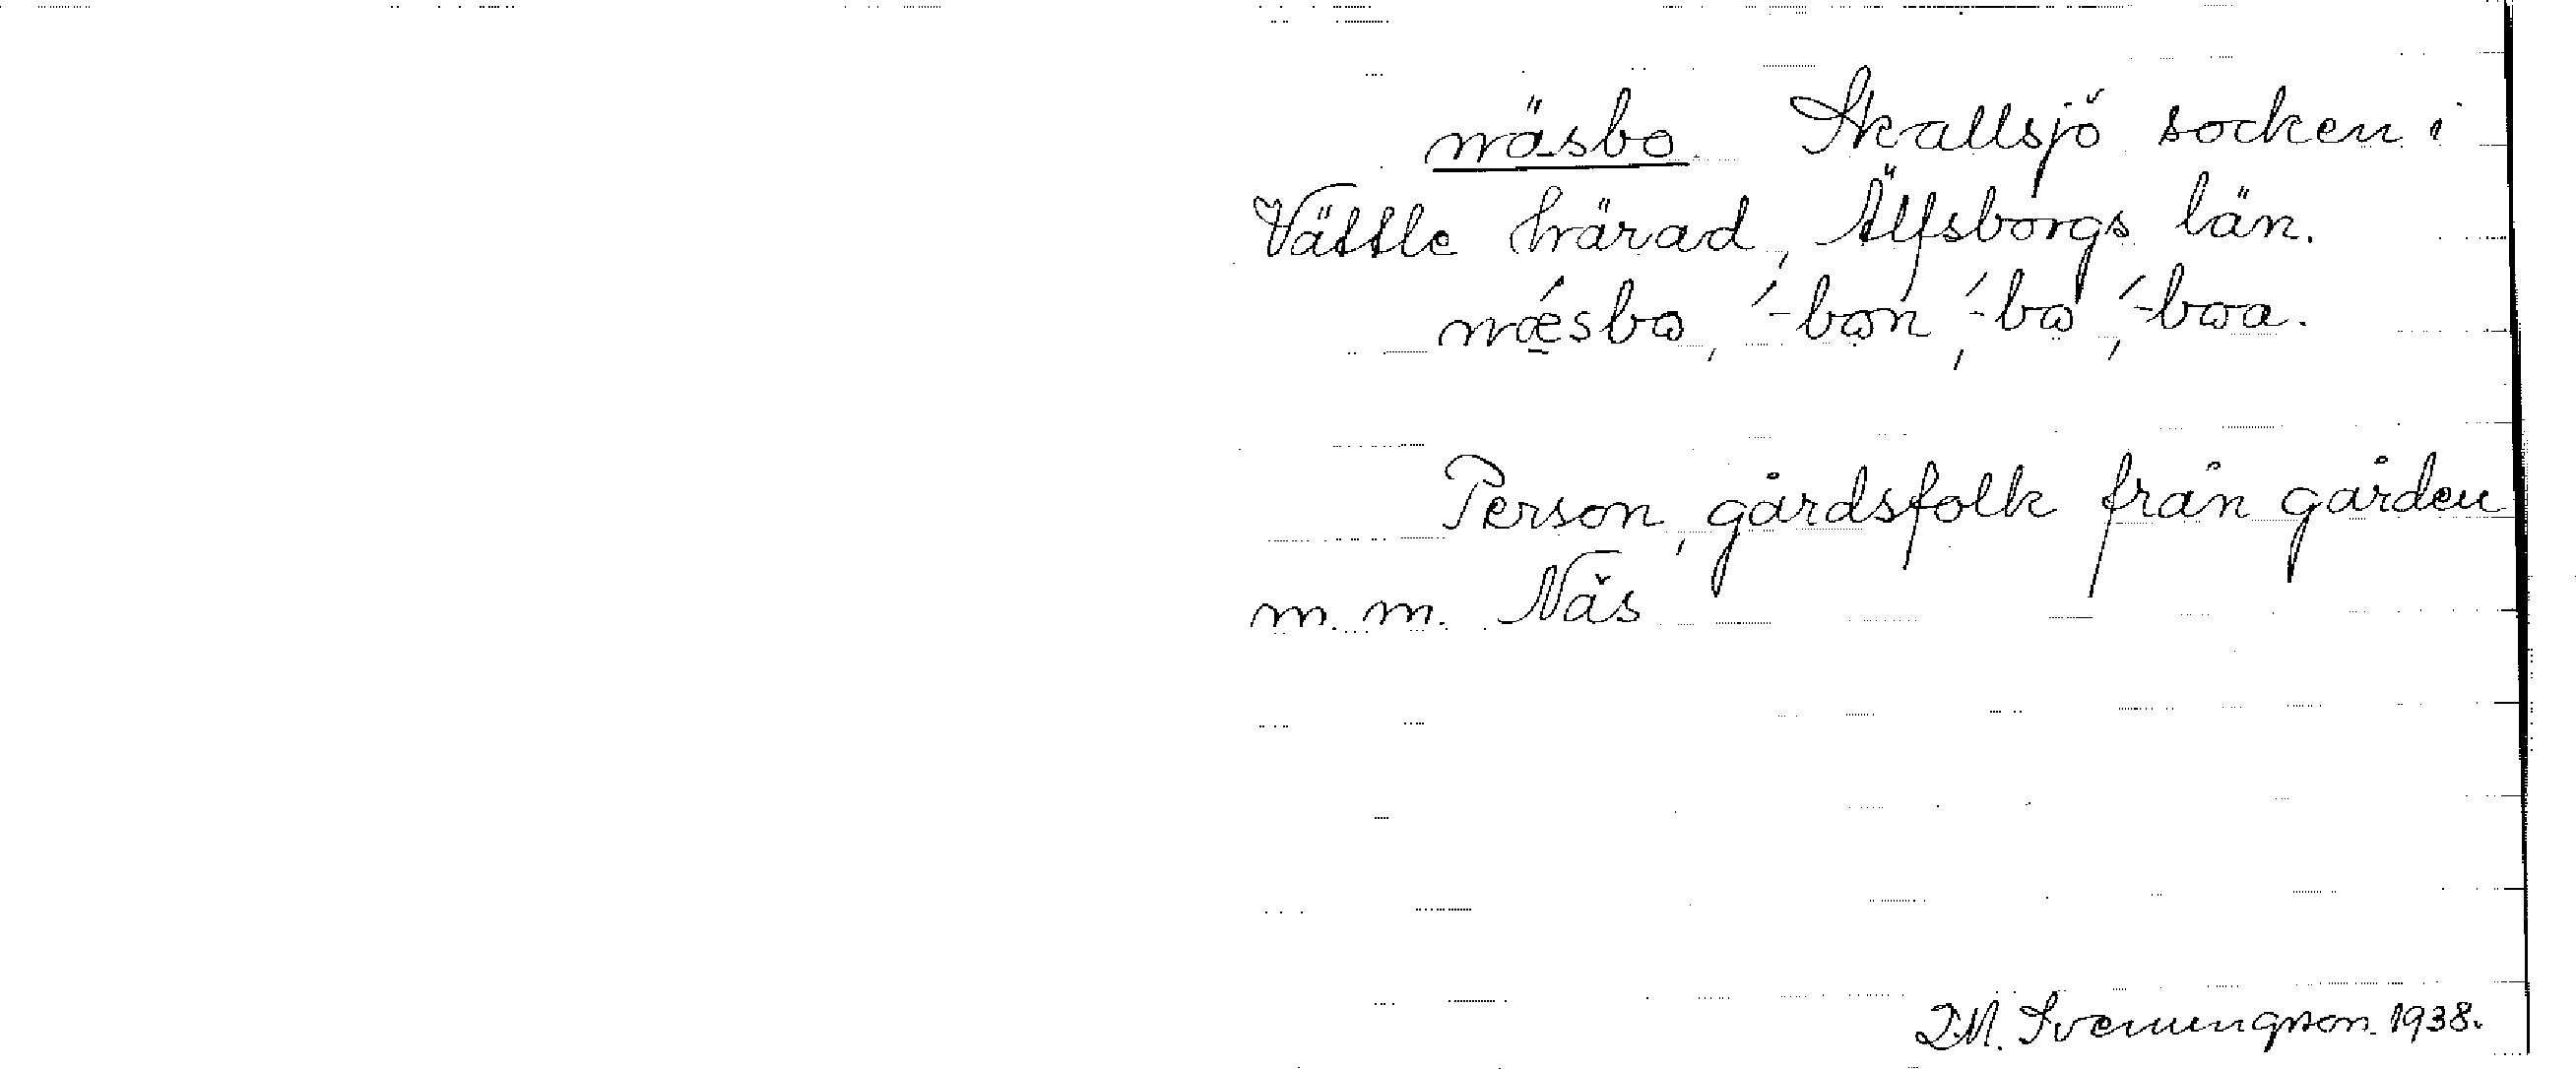 näsbo. Skallsjö socken i
Vättle härad, Älfsborgs län.
nǽ̱sbo, ´-bon, ´-bo, ´-boa.
Person, gårdsfolk från gården
m. m. Näs
Svenungsson. 1938.